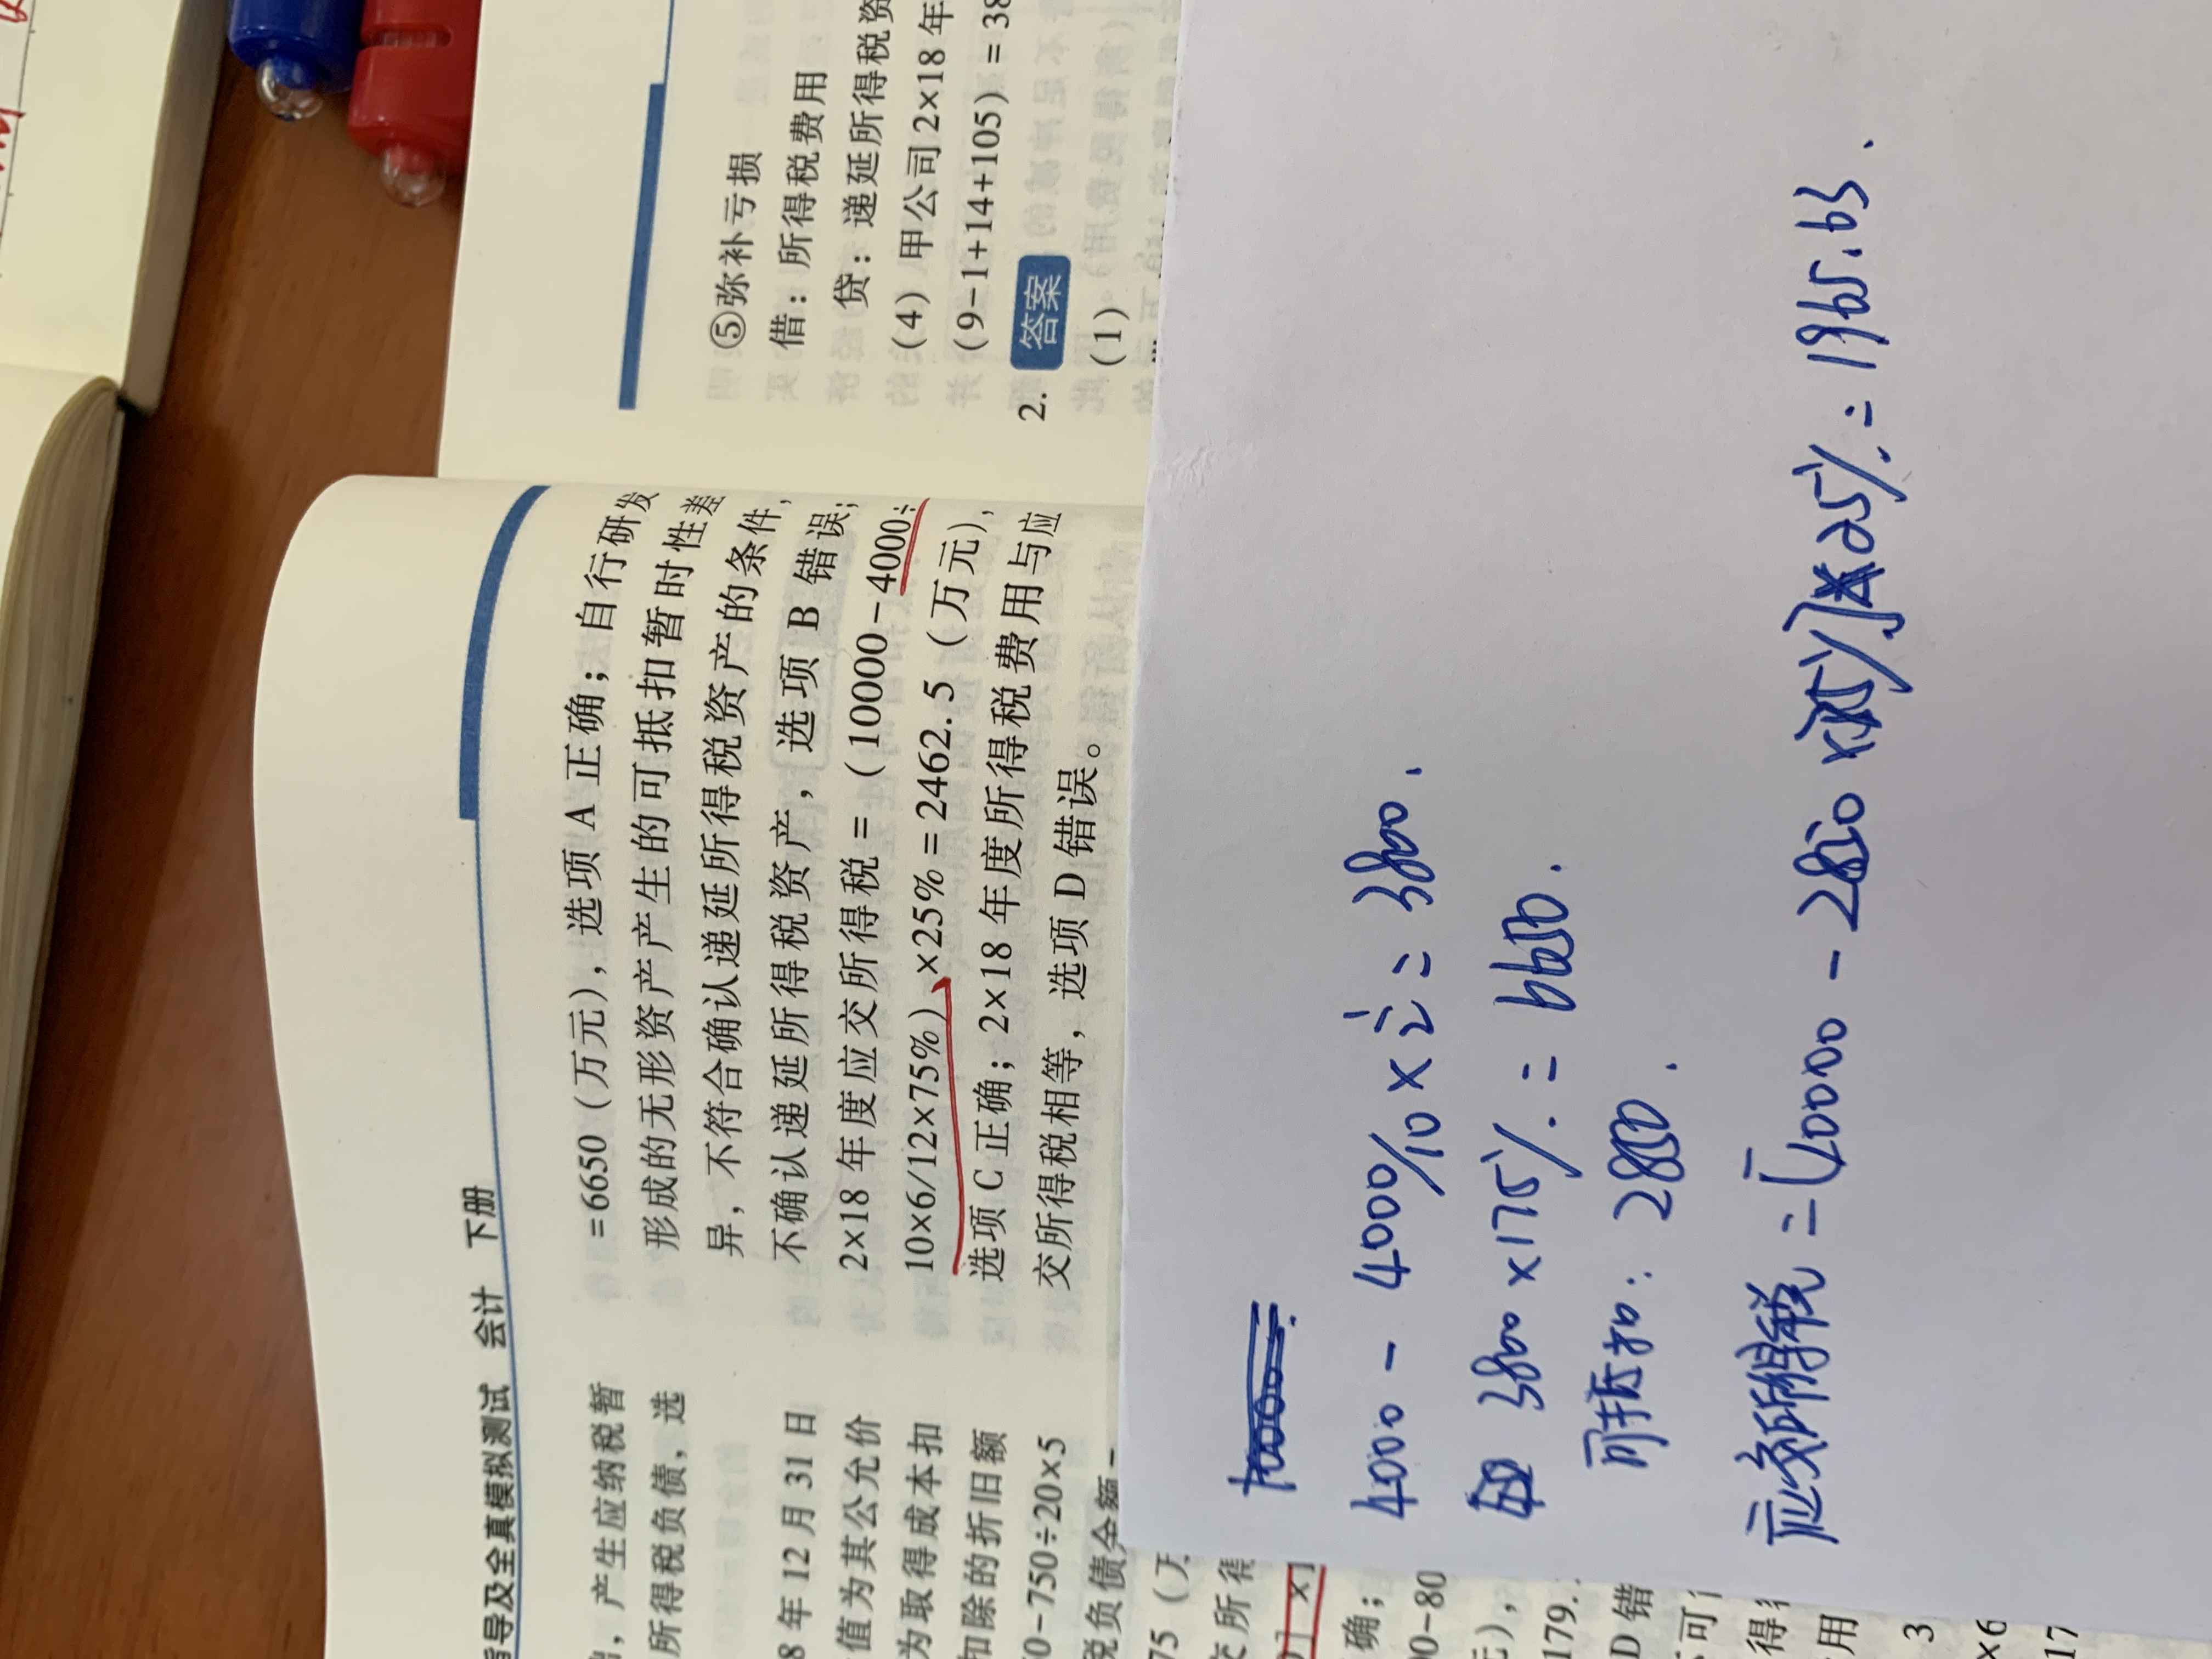 指导及全真模拟测试 会计 下册
出，产生应纳税暂
所得税负债，选
8 年 12 月 31 日
值为其公允价
为取得成本扣
扣除的折旧额
0-750÷20×5
税负债余额-
75（万
交所得
] ×
确；
00-80
元），
179.
D 错
不可
得
用
3
×6
17
=6650（万元），选项 A 正确；自行研发
形成的无形资产产生的可抵扣暂时性差
异，不符合确认递延所得税资产的条件，
不确认递延所得税资产，选项 B 错误；
2×18 年度应交所得税 =（10000-4000÷
10×6/12×75%）×25% = 2462.5（万元），
选项 C 正确；2×18 年度所得税费用与应
交所得税相等，选项 D 错误。
⑤弥补亏损
借：所得税费用
贷：递延所得税资
（4）甲公司 2×18 年
（9-1+14+105）= 38
2. 答案
（1）
4000 - 4000/10 × 1/2 = 3800.
3800 × 175% = 6650.
可抵扣: 2850.
应交所得税 = (10000 - 2850 × 75%] × 25% = 1965.63.